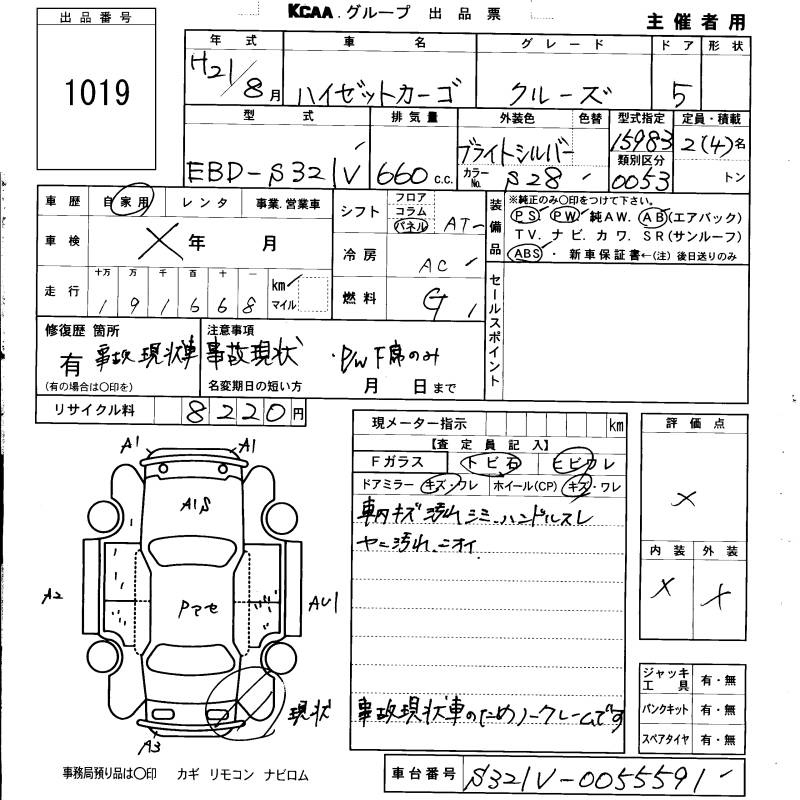 出品番号
1019
KCAA.グループ 出品票
主催者用
年式 車名 グレード ドア 形状
H21/8月 ハイゼットカーゴ クルーズ 5
型式 排気量 外装色 色替 型式指定 定員・積載
EBD-S321V 660 c.c. ブライトシルバー 15983 2(4)名
カラーNo. S28 類別区分 0053 トン
車歴 自家用 レンタ 事業.営業車
車検 × 年 月
走行 十万 万 千 百 十 一 km マイル
191668
シフト フロア コラム パネル AT
冷房 AC
燃料 G
装備品
※純正のみ〇印をつけて下さい。
PS PW 純AW. AB(エアバック)
TV. ナビ. カワ. SR(サンルーフ)
ABS ・ 新車保証書←(注)後日送りのみ
セールスポイント
修復歴 箇所
有 事故現状車
(有の場合は〇印を)
注意事項
事故現状 ・P/W下席のみ
名変期日の短い方 月 日まで
リサイクル料 8220円
現メーター指示 km
【査定員記入】
Fガラス トビ石 ヒビワレ
ドアミラー キズ・ワレ ホイール(CP) キズ・ワレ
車内キズ 汚れ シミ.ハンドルスレ
ヤニ汚れ.ニオイ
事故現状車のためノークレームです
評価点
×
内装 外装
× ×
A1 A1
A1S
A2
Pマセ
AU1
A3
現状
ジャッキ工具 有・無
パンクキット 有・無
スペアタイヤ 有・無
事務局預り品は〇印 カギ リモコン ナビロム
車台番号 S321V-0055591